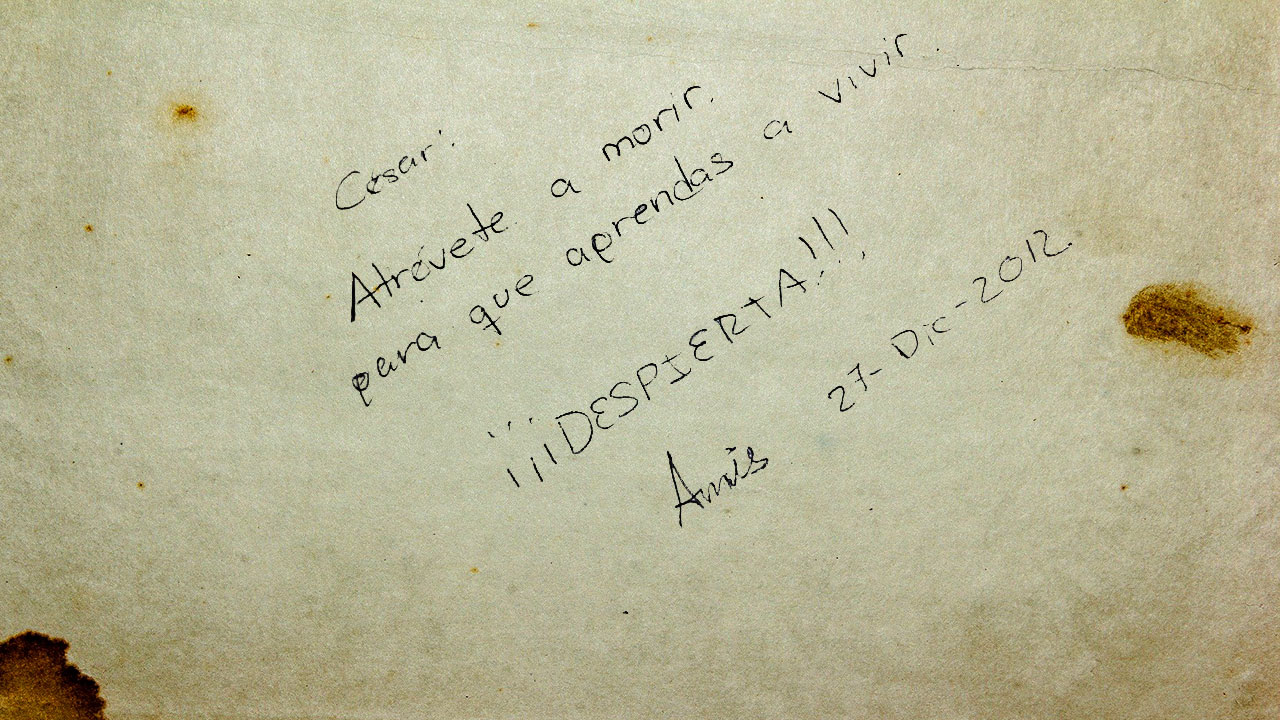 Cesar:
Atrévete a morir.
para que aprendas a vivir.
¡¡¡DESPIERTA!!!
27-Dic-2012.